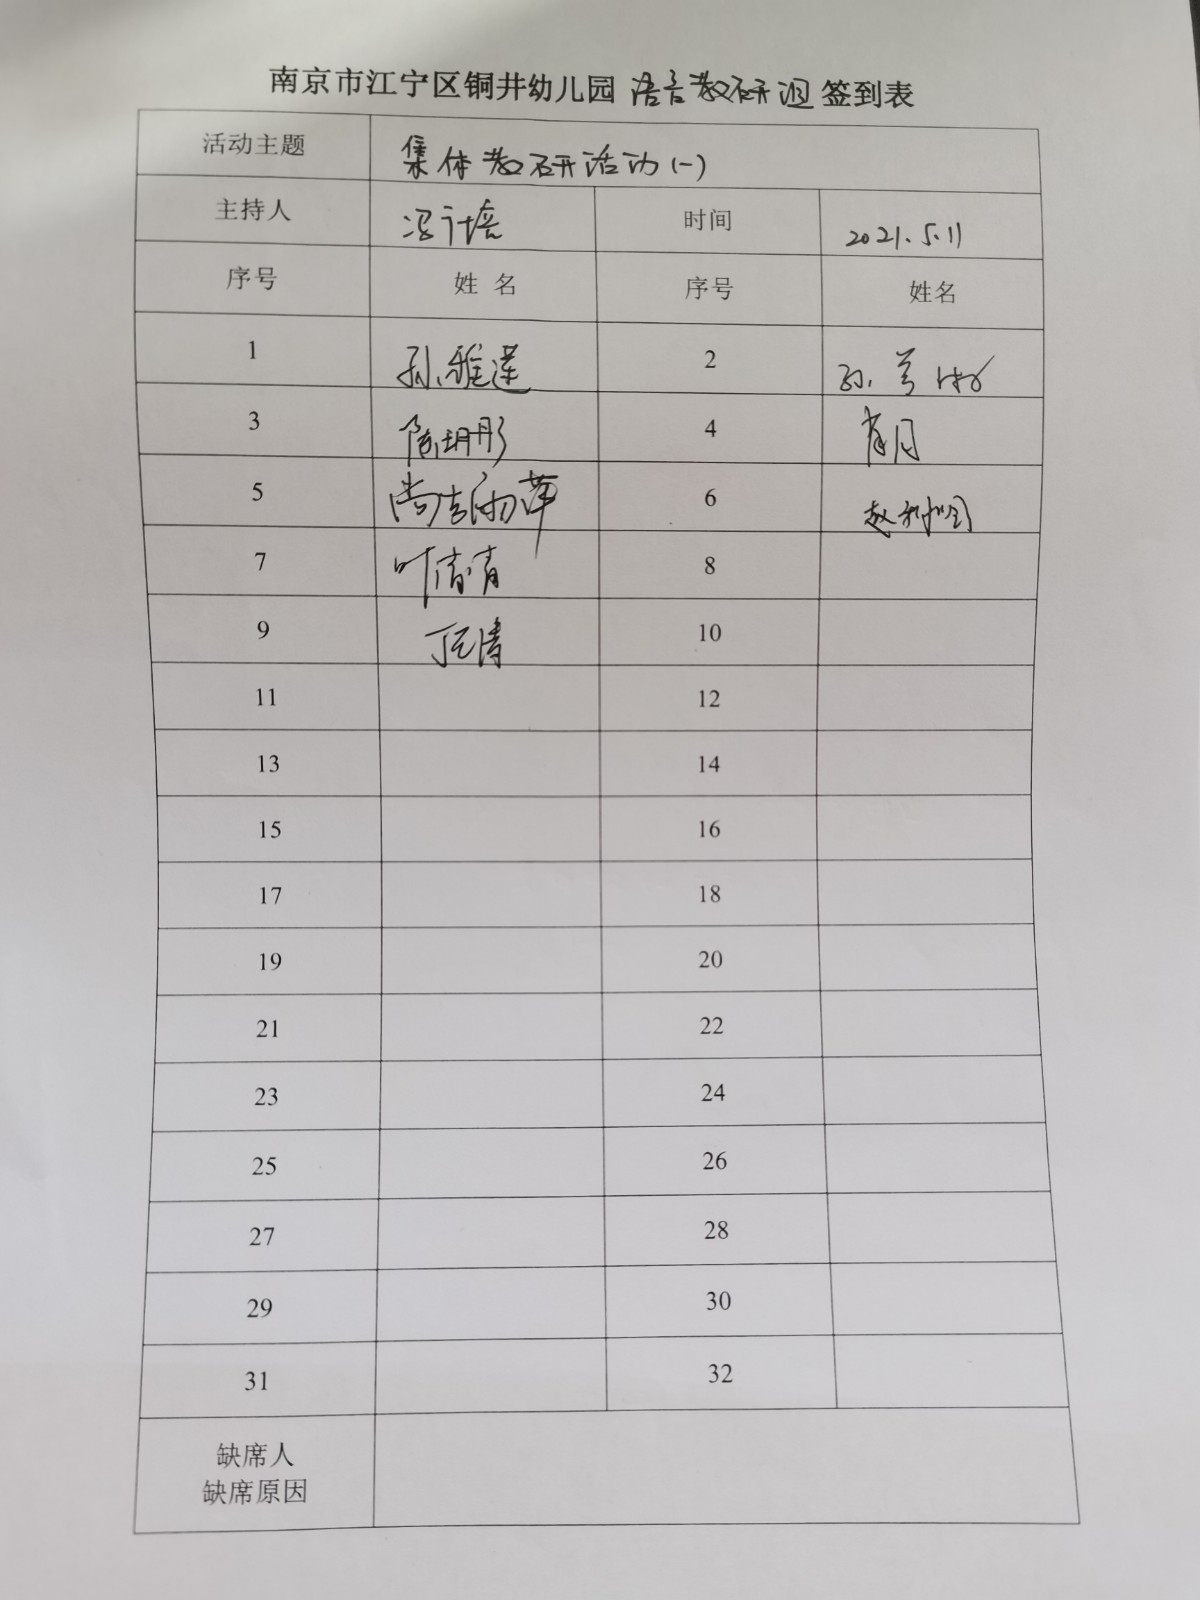 南京市江宁区铜井幼儿园 语言教研组 签到表
活动主题 集体教研活动(一)
主持人 时间 2021.5.11
序号 姓名 序号 姓名
1 孙雅莲 2 孙
3 陈玥彤 4 肖月
5 尚吉雨萍 6 赵
7 叶倩倩 8
9 丁 10
11 12
13 14
15 16
17 18
19 20
21 22
23 24
25 26
27 28
29 30
31 32
缺席人
缺席原因